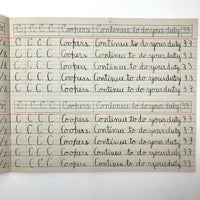 C C C C Coopers Continue to do your duty 33
C C C C Coopers Continue to do your duty 33
C C C C Coopers Continue to do your duty 33
C C C C Coopers Continue to do your duty 33
C C C C Coopers Continue to do your duty 33
C C C C Coopers Continue to do your duty 33
C C C C Coopers Continue to do your duty 33
C C C C Coopers Continue to do your duty 33
C C C C Coopers Continue to do your duty 33
C C C C Coopers Continue to do your duty 33
C C C C Coopers Continue to do your duty 33
C C C C Coopers Continue to do your duty 33
C C C C Coopers Continue to do your duty 33